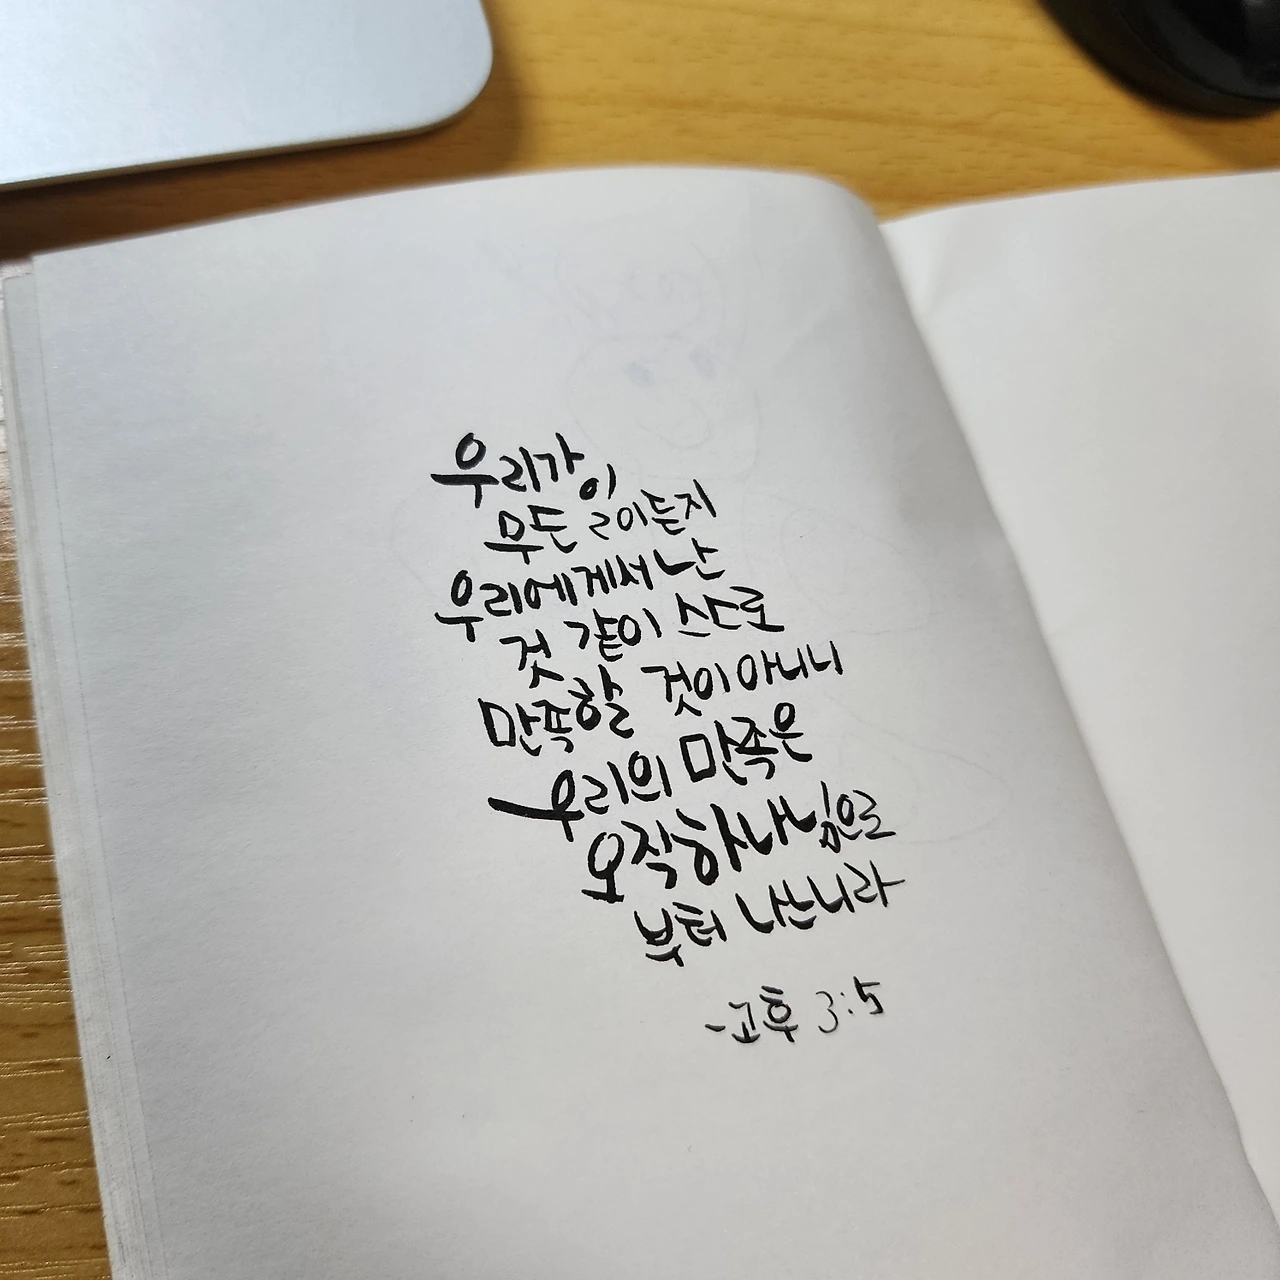 우리가
무슨 일이든지
우리에게서 난
것 같이 스스로
만족할 것이 아니니
우리의 만족은
오직 하나님으로
부터 나느니라
-고후 3:5